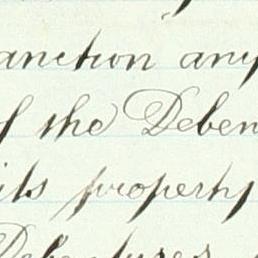 anction any
of the Deben
its property
Debentures